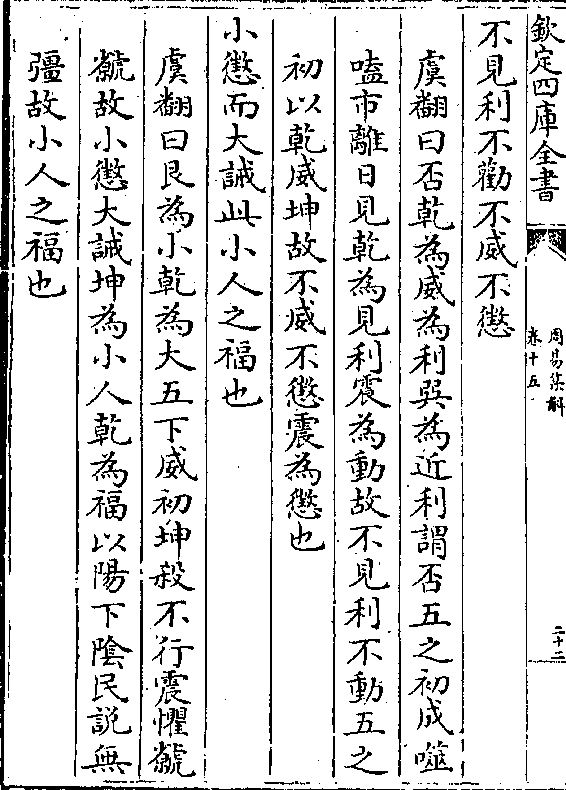 欽定四庫全書
周易集解
卷十五
二十二
不見利不勸不威不懲
虞翻曰否乾為威為利巽為近利謂否五之初成噬
嗑市離日見乾為見利震為動故不見利不動五之
初以乾威坤故不威不懲震為懲也
小懲而大誡此小人之福也
虞翻曰艮為小乾為大五下威初坤殺不行震懼虩
虩故小懲大誡坤為小人乾為福以陽下陰民説無
彊故小人之福也